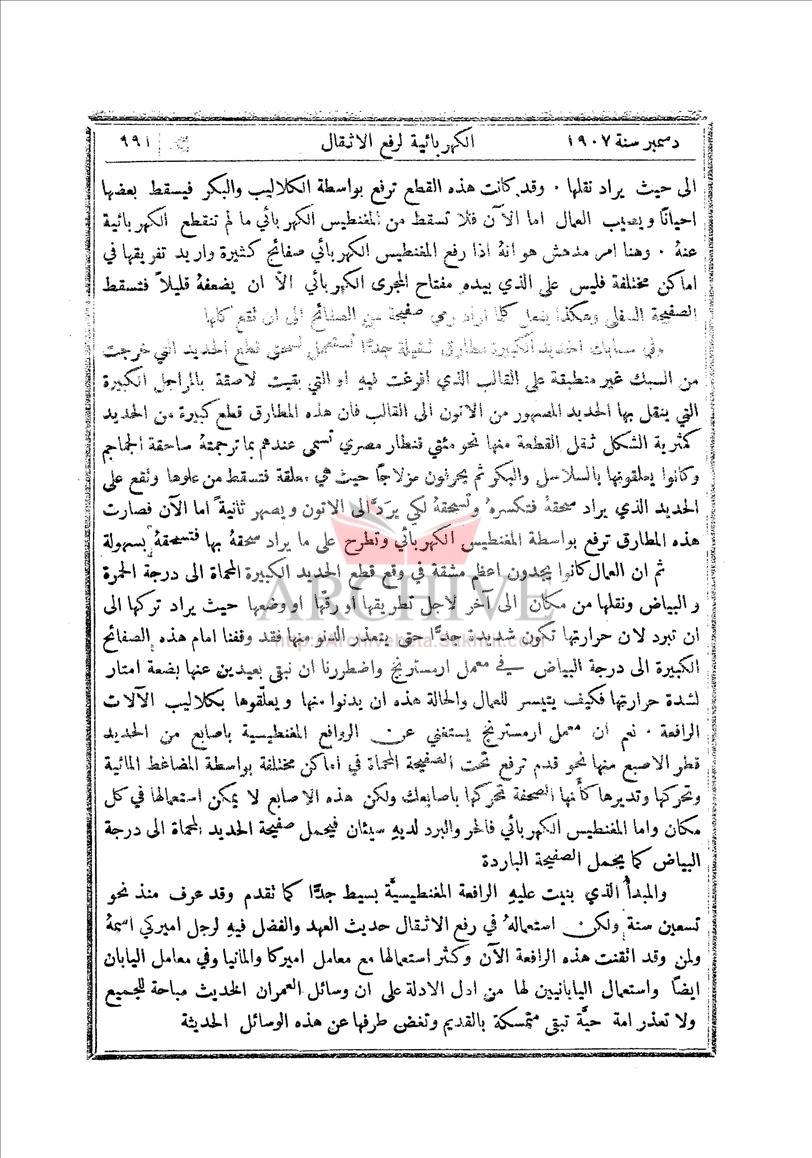 دسمبر سنة ١٩٠٧ الكهربائية لرفع الاثقال ٩٩١
الى حيث يراد نقلها ٠ وقد كانت هذه القطع ترفع بواسطة الكلاليب والبكر فيسقط بعضها
احيانًا ويصيب العمال اما الآن فلا تسقط من المغنطيس الكهربائي ما لم تنقطع الكهربائية
عنهُ ٠ وهنا امر مدهش هو انهُ اذا رفع المغنطيس الكهربائي صفائح كثيرة واريد تفريقها في
اماكن مختلفة فليس على الذي بيده مفتاح المجرى الكهربائي الاّ ان يضعفهُ قليلاً فتسقط
الصفيحة السفلى وهكذا يفعل كلما اراد رمي صفيحة من الصفائح الى ان تقع كلها
وفي مسابك الحديد الكبيرة مطارق ثقيلة جدًّا تستعمل لسحق قطع الحديد التي خرجت
من السبك غير منطبقة على القالب الذي افرغت فيهِ او التي بقيت لاصقة بالمراجل الكبيرة
التي ينقل بها الحديد المصهور من الاتون الى القالب فان هذه المطارق قطع كبيرة من الحديد
كمثرية الشكل ثقل القطعة منها نحو مئتي قنطار مصري تسمى عندهم بما ترجمتهُ ساحقة الجماجم
وكانوا يعلقونها بالسلاسل والبكر ثم يحرفون مزلاجًا حيث هي معلقة فتسقط من علوها وتقع على
الحديد الذي يراد سحقهُ فتكسرهُ وتسحقهُ لكي يردَّ الى الاتون ويصهر ثانيةً اما الآن فصارت
هذه المطارق ترفع بواسطة المغنطيس الكهربائي وتطرح على ما يراد سحقهُ بها فتسحقهُ بسهولة
ARCHIVE
http://Archivebeta.Sakhrit.com
ثم ان العمال كانوا يجدون اعظم مشقة في رفع قطع الحديد الكبيرة المحماة الى درجة الحمرة
والبياض ونقلها من مكان الى آخر لاجل تطريقها او رقّها او وضعها حيث يراد تركها الى
ان تبرد لان حرارتها تكون شديدة جدًّا حتى يتعذر الدنو منها فقد وقفنا امام هذه الصفائح
الكبيرة الى درجة البياض في معمل ارمسترنج واضطررنا ان نبقى بعيدين عنها بضعة امتار
لشدة حرارتها فكيف يتيسر للعمال والحالة هذه ان يدنوا منها ويعلّقوها بكلاليب الآلات
الرافعة ٠ نعم ان معمل ارمسترنج يستغني عن الروافع المغنطيسية باصابع من الحديد
قطر الاصبع منها نحو قدم ترفع تحت الصفيحة المحماة في اماكن مختلفة بواسطة المضاغط المائية
وتحركها وتديرها كأنها الصحفة تحركها باصابعك ولكن هذه الاصابع لا يمكن استعمالها في كل
مكان واما المغنطيس الكهربائي فالحر والبرد لديهِ سيئان فيحمل صفيحة الحديد المحماة الى درجة
البياض كما يحمل الصفيحة الباردة
والمبدأ الذي بنيت عليهِ الرافعة المغنطيسيَّة بسيط جدًّا كما تقدم وقد عرف منذ نحو
تسعين سنة ولكن استعمالهُ في رفع الاثقال حديث العهد والفضل فيهِ لرجل اميركي اسمهُ
ولمن وقد اتقنت هذه الرافعة الآن وكثر استعمالها مع معامل اميركا والمانيا وفي معامل اليابان
ايضًا واستعمال اليابانيين لها من ادل الادلة على ان وسائل العمران الحديث مباحة للجميع
ولا تعذر امة حيَّة تبقى متمسكة بالقديم وتغض طرفها عن هذه الوسائل الحديثة